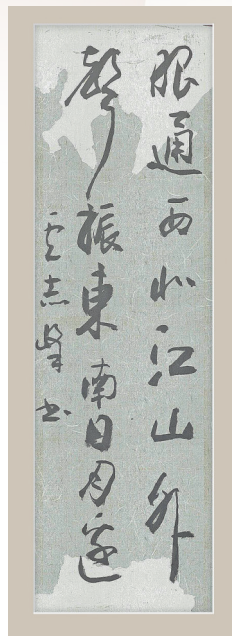 眼通西北江山外
聲振東南日月邊
云志峰书